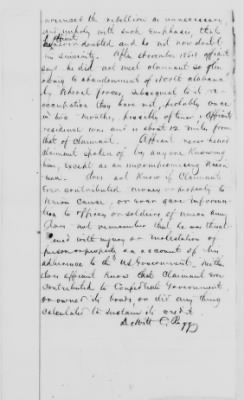 nounced the rebellion as unnecessary,
and unholy with such emphasis, that
affiant
never doubted and he not now doubt
his sincerity. After November 1861 affiant
says he did not meet claimant so often
owing to abandonment of North Alabama
by Federal forces, subsequent to its re-
occupation they have met, probably once
in two months, possibly oftener. Affiants
residence was and is about 12 miles from
that of claimant. Affiant never heard
claimant spoken of by any one knowing
him, except as an uncompromising Union
man. does not know if Claimant
Ever contributed money or property to
Union cause, or ever gave informa-
tion to officers or soldiers of Union Army
Does not remember that he was threat-
ened with injury or molestation of
person or property on account of his
adherence to the US Government, neither
does affiant know that Claimant ever
contributed to Confederate Government
or owned its bonds or did any thing
calculated to sustain its credit.
DeWitt C.